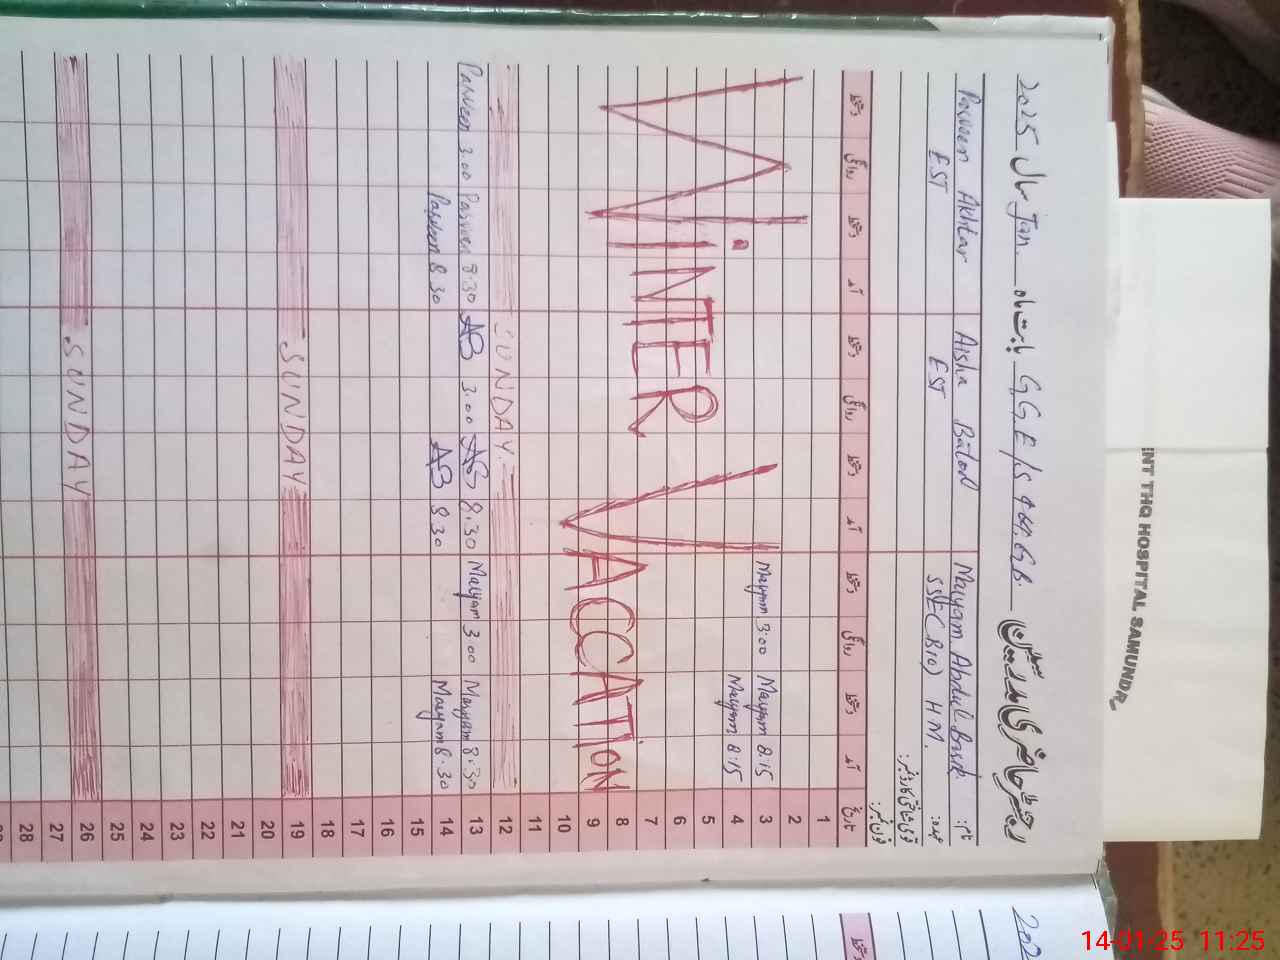 رجسٹر حاضری مدرسین G.G.E/S بابت ماہ Jan. سال 2025
نام: Maryam Abdul Basit Aisha Batool Parveen Akhtar
عہدہ: SSE(Bio) H.M. EST EST
قومی شناختی کارڈ نمبر:
فون نمبر:
تاریخ آمد دستخط روانگی دستخط آمد دستخط روانگی دستخط آمد دستخط روانگی دستخط
1
2
3 8:15 Maryam 3:00 Maryam
4 8:15 Maryam
5
6
7
8
9
10
WINTER VACCATION
11
12 SUNDAY
13 8:30 Maryam 3:00 Maryam 8:30 AB 3:00 AB 8:30 Parveen 3:00 Parveen
14 8:30 Maryam 8:30 AB 8:30 Parveen
15
16
17
18
19 SUNDAY
20
21
22
23
24
25
26 SUNDAY
27
28
ENT THQ HOSPITAL SAMUNDR
202
دستخط
14-01-25 11:25